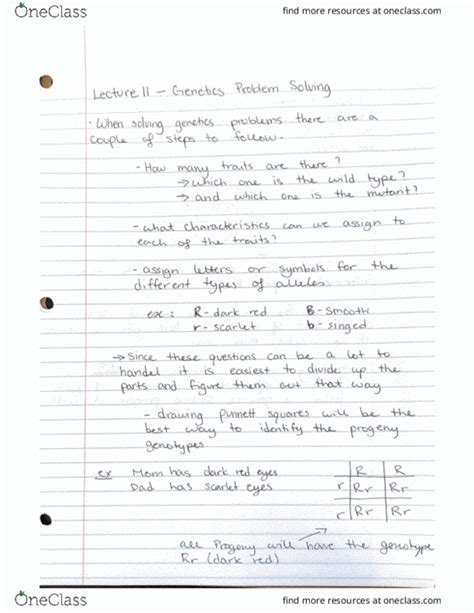 OneClass
find more resources at oneclass.com
Lecture 11 - Genetics Problem Solving
· When solving genetics problems there are a
couple of steps to follow.
- How many traits are there?
→ which one is the wild type?
→ and which one is the mutant?
- what characteristics can we assign to
each of the traits?
- assign letters or symbols for the
different types of alleles
ex: R - dark red B - smooth
r - scarlet b - singed
→ Since these questions can be a lot to
handel it is easiest to divide up the
parts and figure them out that way
- drawing punnett squares will be the
best way to identify the progeny
genotypes.
ex Mom has dark red eyes R R
Dad has scarlet eyes r Rr Rr
r Rr Rr
all Progeny will have the genotype
Rr (dark red)
OneClass
find more resources at oneclass.com